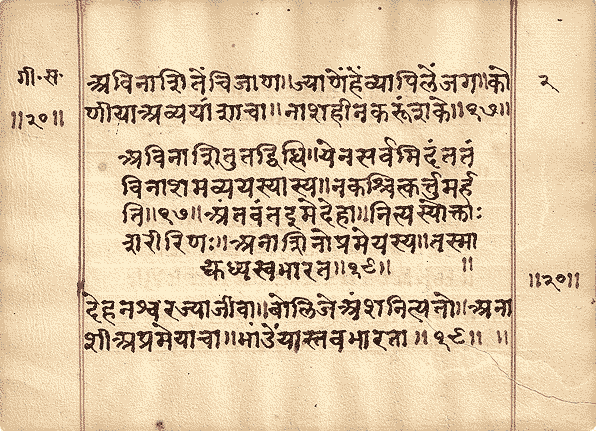 गी॰स॰
॥२०॥
अविनाशि तें चि जाण॥ ज्याणें हें व्यापिलें जग॥ को
णीया अव्यया चा॥ नाश हीन करूं शके॥१७॥
२
अविनाशि तु तद्विद्धि॥ येन सर्वमिदं ततं
विनाशमव्ययस्यास्य॥ न कश्चित्कर्त्तुमर्ह
ति॥१७॥ अंतवंत इमे देहा॥ नित्यस्योक्ताः
शरीरिणः॥ अनाशिनोप्रमेयस्य॥ तस्मा
द्युध्यस्व भारत॥१८॥ ॥
॥२०॥
देह नश्वर ज्या जीवा॥ बोलिजे अंश नित्य तो॥ अना
शी अप्रमेयाचा॥ भांडें यास्तव भारता॥१८॥ ॥